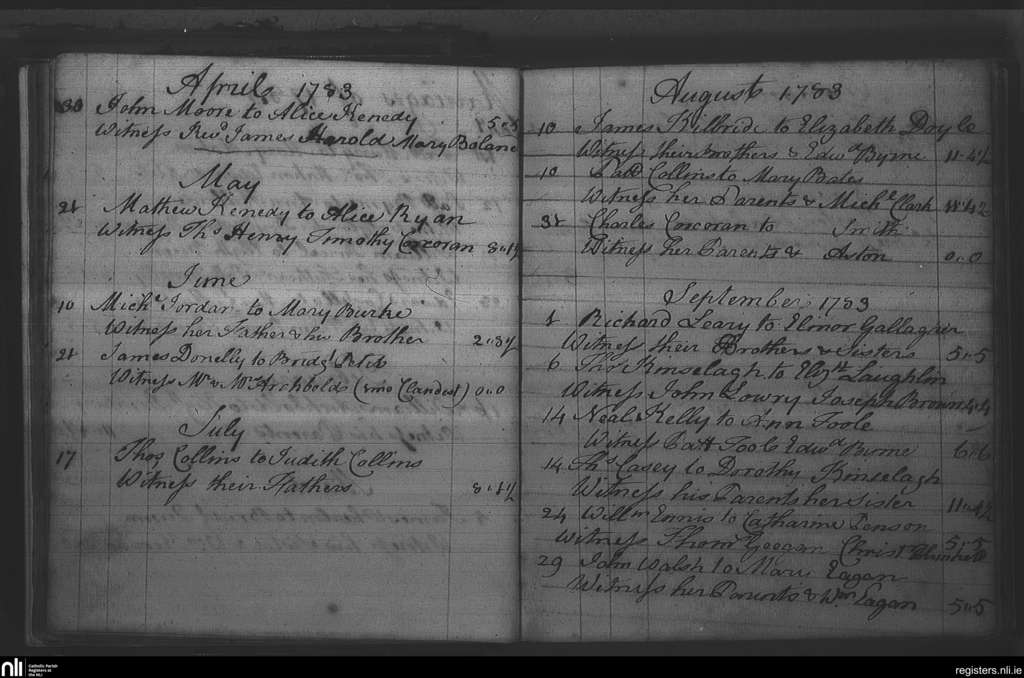 April 1783
30 John Moore to Alice Kenedy
Witness Revd James Harold Mary Bolane 5"5
May
21 Mathew Kenedy to Alice Ryan
Witness Thos Henry Timothy Corcoran 8"1½
June
10 Michl Jordan to Mary Burke
Witness her Father & his Brother 2"8½
21 James Donelly to Bridgt Petit
Witness Mr & Mrs Archbolds (vino Clandest) 0"0
July
17 Thos Collins to Judith Collins
Witness their Fathers 8"1½
August 1783
10 James Kilbride to Elizabeth Doyle
Witness their brothers & Edwd Byrne 11"4½
10 Patt Collins to Mary Bates
Witness her Parents & Michl Clark 11"4½
31 Charles Corcoran to Smith
Witness her Parents & Aston 0"0
September 1783
1 Richard Leary to Elinor Gallagher
Witness their Brothers & Sisters 5"5
6 Thos Kinselagh to Elizth Laughlin
Witness John Lowry Joseph Brown 4"4
14 Neal Kelly to Ann Toole
Witness Patt Toole Edwd Burne 6"6
14 Thos Casey to Dorothy Kinselagh
Witness his Parents her sister 11"4½
24 Willm Ennis to Catharine Penson
Witness Thom Geogan Christ 5"5
29 John Walsh to Mary Eagan
Witness her Parents & Wm Eagan 5"5
nli
Catholic Parish
Registers at
the NLI
registers.nli.ie